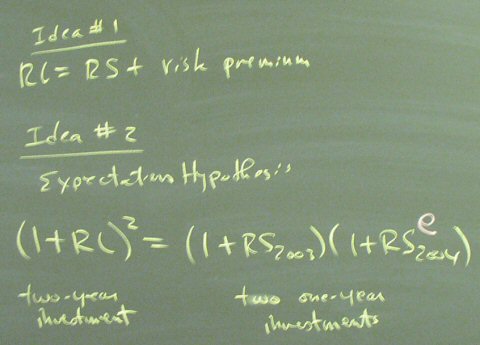 Idea #1
RL = RS + risk premium
Idea #2
Expectations Hypothesis
(1+RL)² = (1+RS₂₀₀₃)(1+RSᵉ₂₀₀₄)
two-year two one-year
investment investments